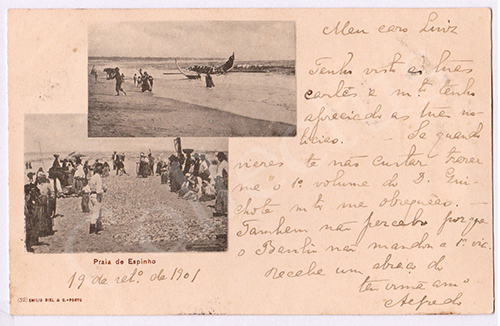 Meu caro Luiz
Tenho visto as tuas
cartas e m.to tenho
apreciado as tuas no-
ticias. — Se quando
vieres te não custar trazer
me o 1.º volume do D. Qui-
chote m.to me obrequião. —
Tambem não percebo porque
o não mandou a 1.ª via
Recebe um abraço do
teu irmão am.º
Alfredo
Praia de Espinho
19 de set.º de 1901
(52) EMILIO BIEL & C.-PORTO